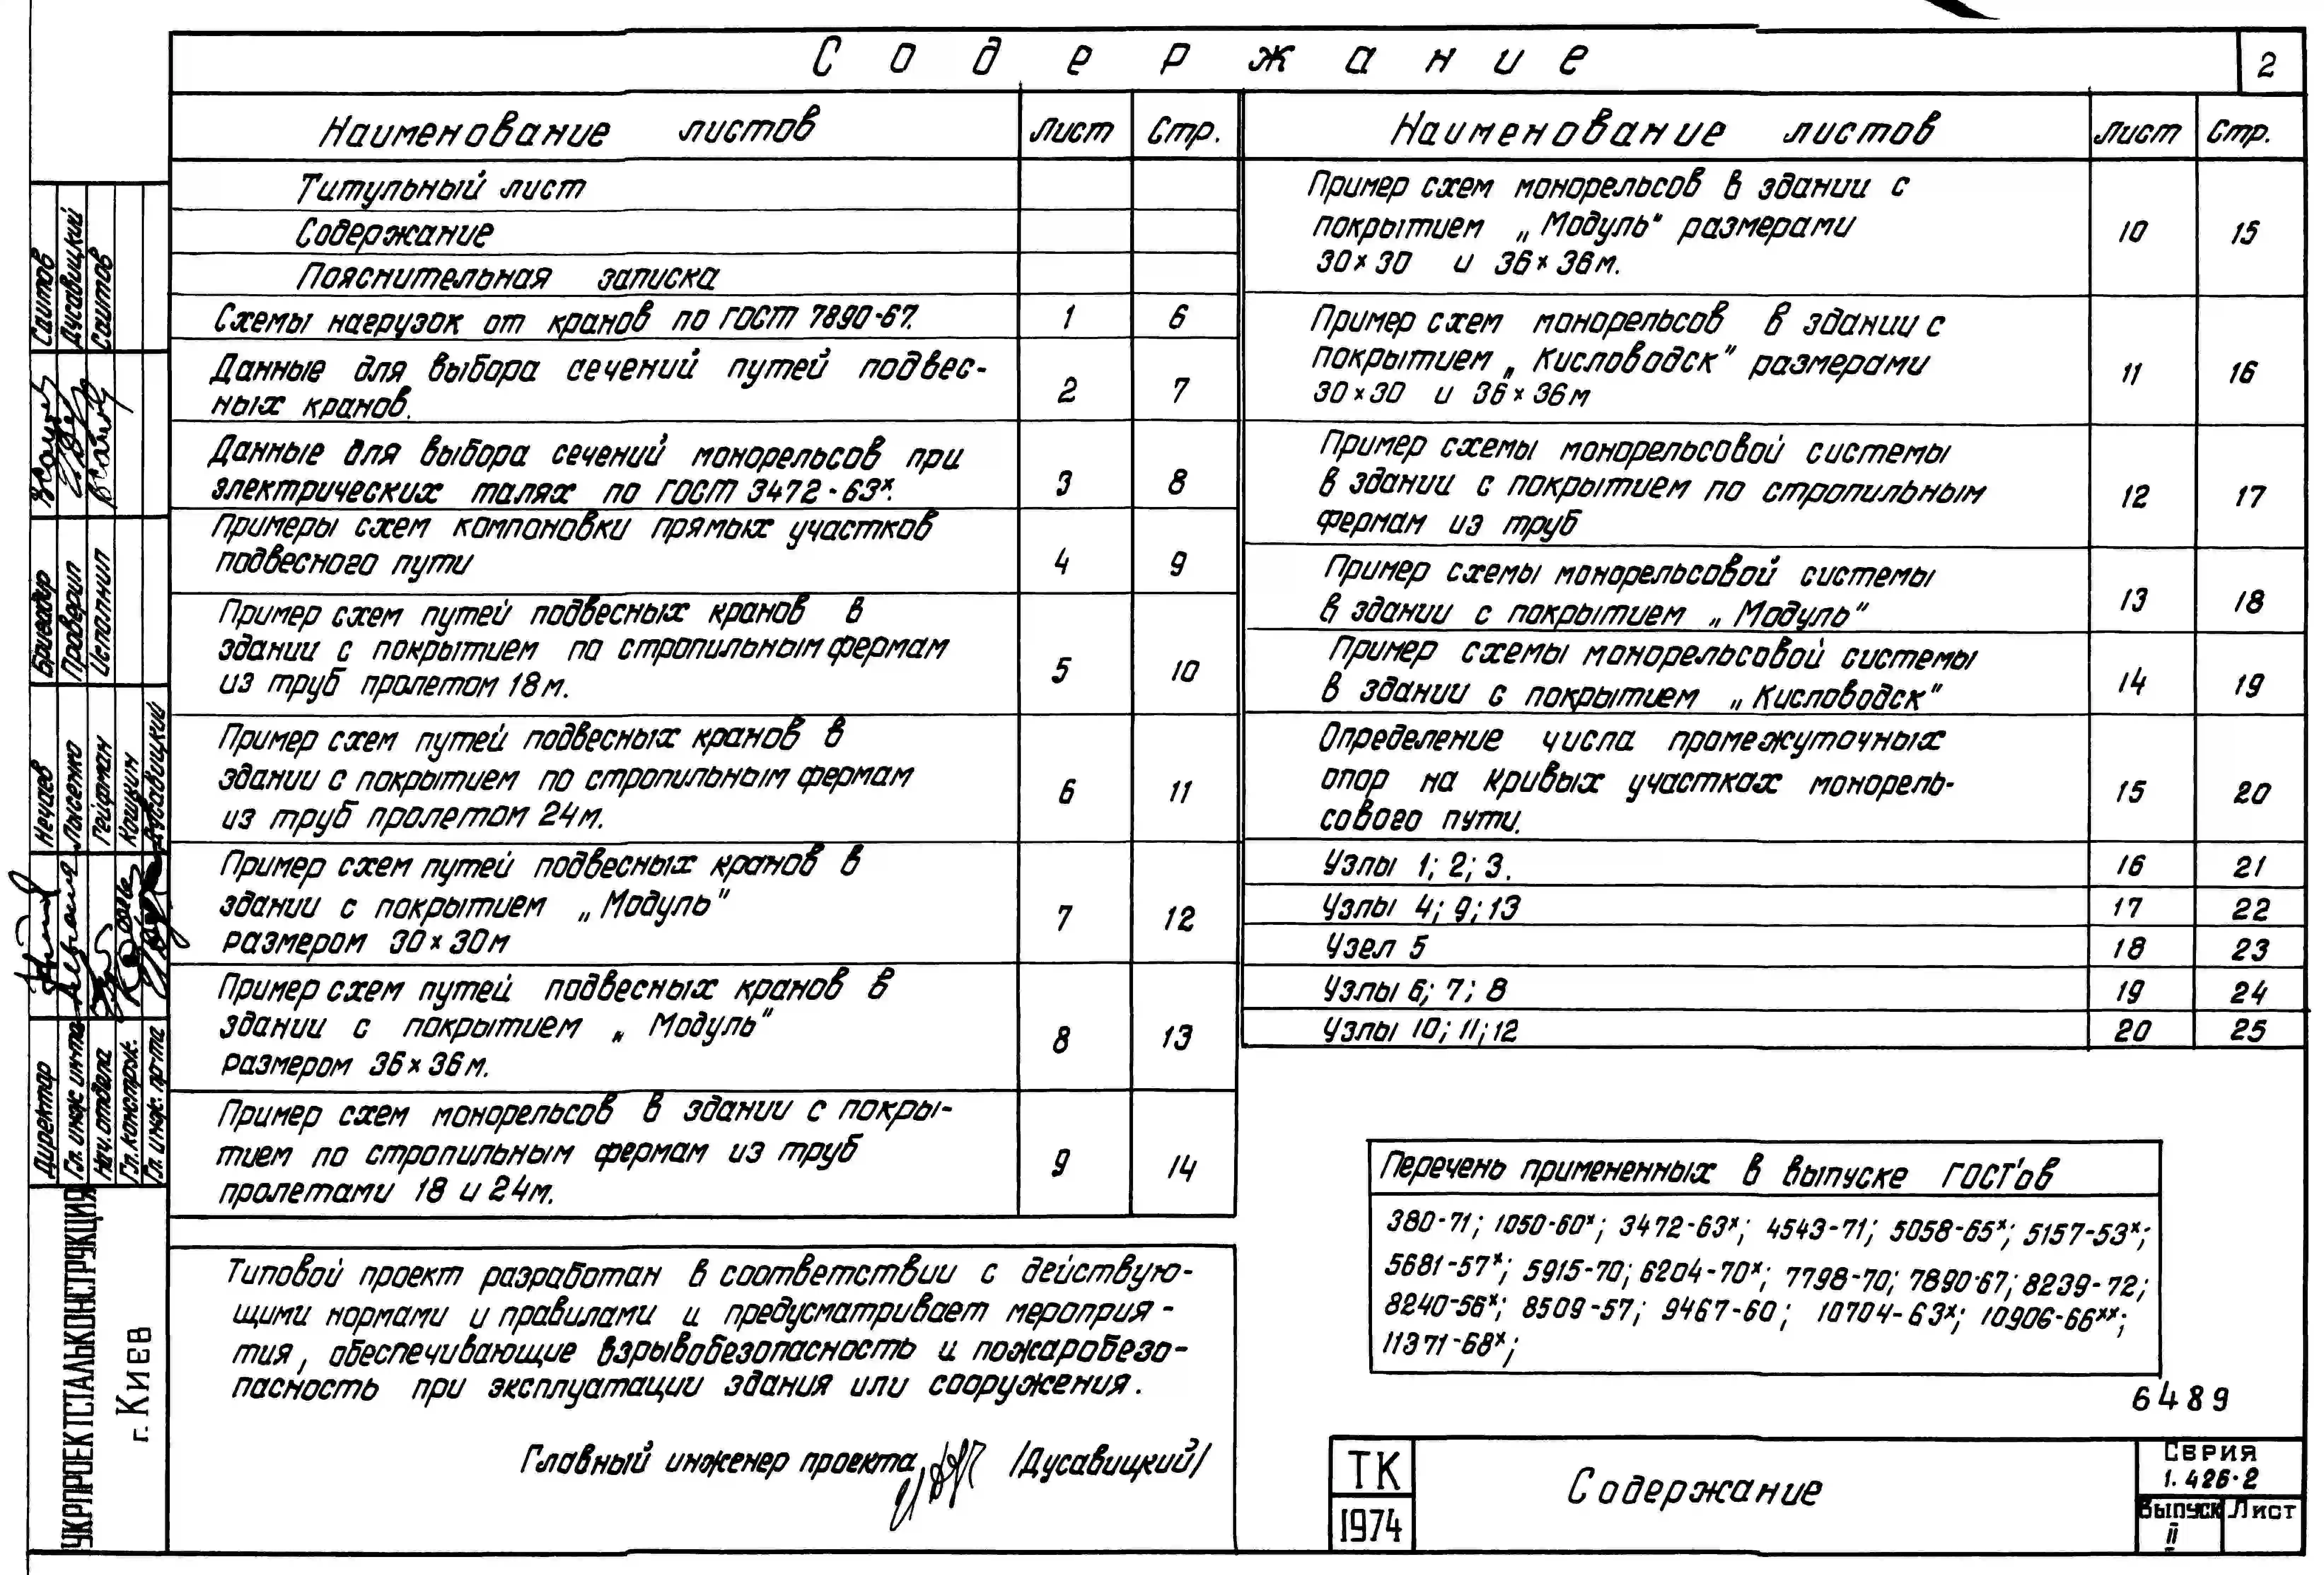 Содержание
2
Наименование листов Лист Стр.
Титульный лист
Содержание
Пояснительная записка
Схемы нагрузок от кранов по ГОСТ 7890-67. 1 6
Данные для выбора сечений путей подвес-
ных кранов. 2 7
Данные для выбора сечений монорельсов при
электрических талях по ГОСТ 3472-63ˣ. 3 8
Примеры схем компоновки прямых участков
подвесного пути 4 9
Пример схем путей подвесных кранов в
здании с покрытием по стропильным фермам
из труб пролетом 18м. 5 10
Пример схем путей подвесных кранов в
здании с покрытием по стропильным фермам
из труб пролетом 24м. 6 11
Пример схем путей подвесных кранов в
здании с покрытием „Модуль"
размером 30×30м 7 12
Пример схем путей подвесных кранов в
здании с покрытием „Модуль"
размером 36×36м. 8 13
Пример схем монорельсов в здании с покры-
тием по стропильным фермам из труб
пролетами 18 и 24м. 9 14
Наименование листов Лист Стр.
Пример схем монорельсов в здании с
покрытием „Модуль" размерами
30×30 и 36×36м. 10 15
Пример схем монорельсов в здании с
покрытием „Кисловодск" размерами
30×30 и 36×36м 11 16
Пример схемы монорельсовой системы
в здании с покрытием по стропильным
фермам из труб 12 17
Пример схемы монорельсовой системы
в здании с покрытием „Модуль" 13 18
Пример схемы монорельсовой системы
в здании с покрытием „Кисловодск" 14 19
Определение числа промежуточных
опор на кривых участках монорель-
сового пути. 15 20
Узлы 1; 2; 3. 16 21
Узлы 4; 9; 13 17 22
Узел 5 18 23
Узлы 6; 7; 8 19 24
Узлы 10; 11; 12 20 25
Типовой проект разработан в соответствии с действую-
щими нормами и правилами и предусматривает мероприя-
тия, обеспечивающие взрывобезопасность и пожаробезо-
пасность при эксплуатации здания или сооружения.
Главный инженер проекта /Дусавицкий/
Перечень примененных в выпуске ГОСТ'ов
380-71; 1050-60ˣ; 3472-63ˣ; 4543-71; 5058-65ˣ; 5157-53ˣ;
5681-57ˣ; 5915-70; 6204-70ˣ; 7798-70; 7890-67; 8239-72;
8240-56ˣ; 8509-57; 9467-60; 10704-63ˣ; 10906-66ˣˣ;
11371-68ˣ;
6489
ТК
1974
Содержание
Серия
1.426-2
Выпуск II
Лист
Саитов
Дусавицкий
Саитов
Бригадир
Проверил
Исполнил
Нечаев
Лысенко
Гейфман
Кошин
Дусавицкий
Директор
Гл. инж. ин-та
Нач. отдела
Гл. конструк.
Гл. инж. пр-та
УКРПРОЕКТСТАЛЬКОНСТРУКЦИЯ
г. Киев